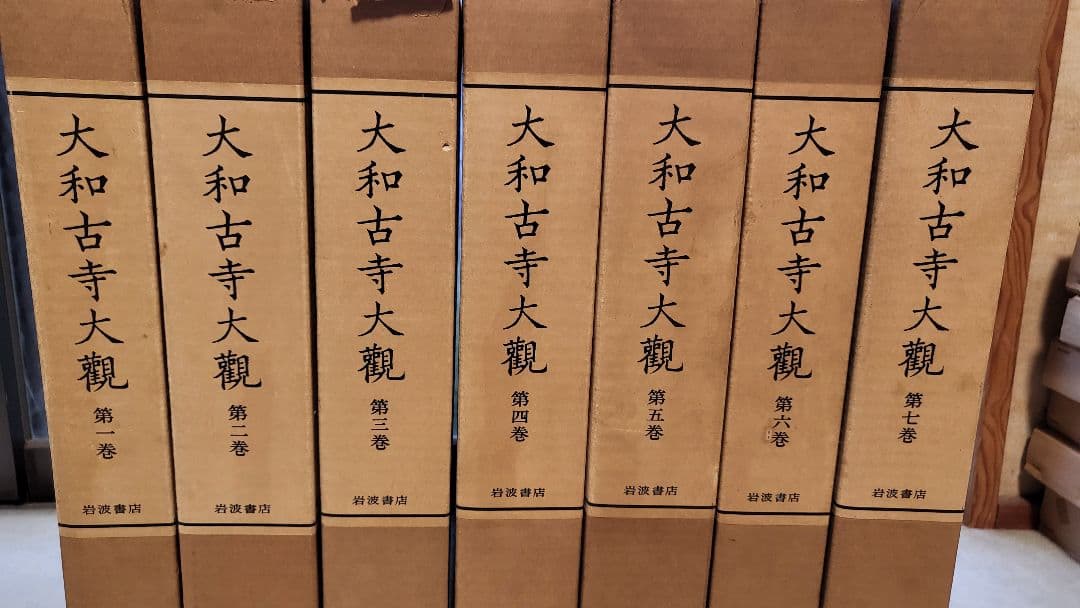 大和古寺大觀
第一巻
岩波書店
大和古寺大觀
第二巻
岩波書店
大和古寺大觀
第三巻
岩波書店
大和古寺大觀
第四巻
岩波書店
大和古寺大觀
第五巻
岩波書店
大和古寺大觀
第六巻
岩波書店
大和古寺大觀
第七巻
岩波書店